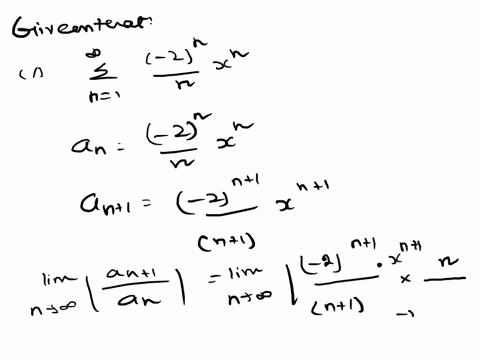 Giventhat:
(1) ∞ Σ n=1 (-2)^n / n x^n
a_n = (-2)^n / n x^n
a_{n+1} = (-2)^{n+1} / (n+1) x^{n+1}
lim n→∞ | a_{n+1} / a_n | = lim n→∞ | (-2)^{n+1} · x^{n+1} / (n+1) × n /